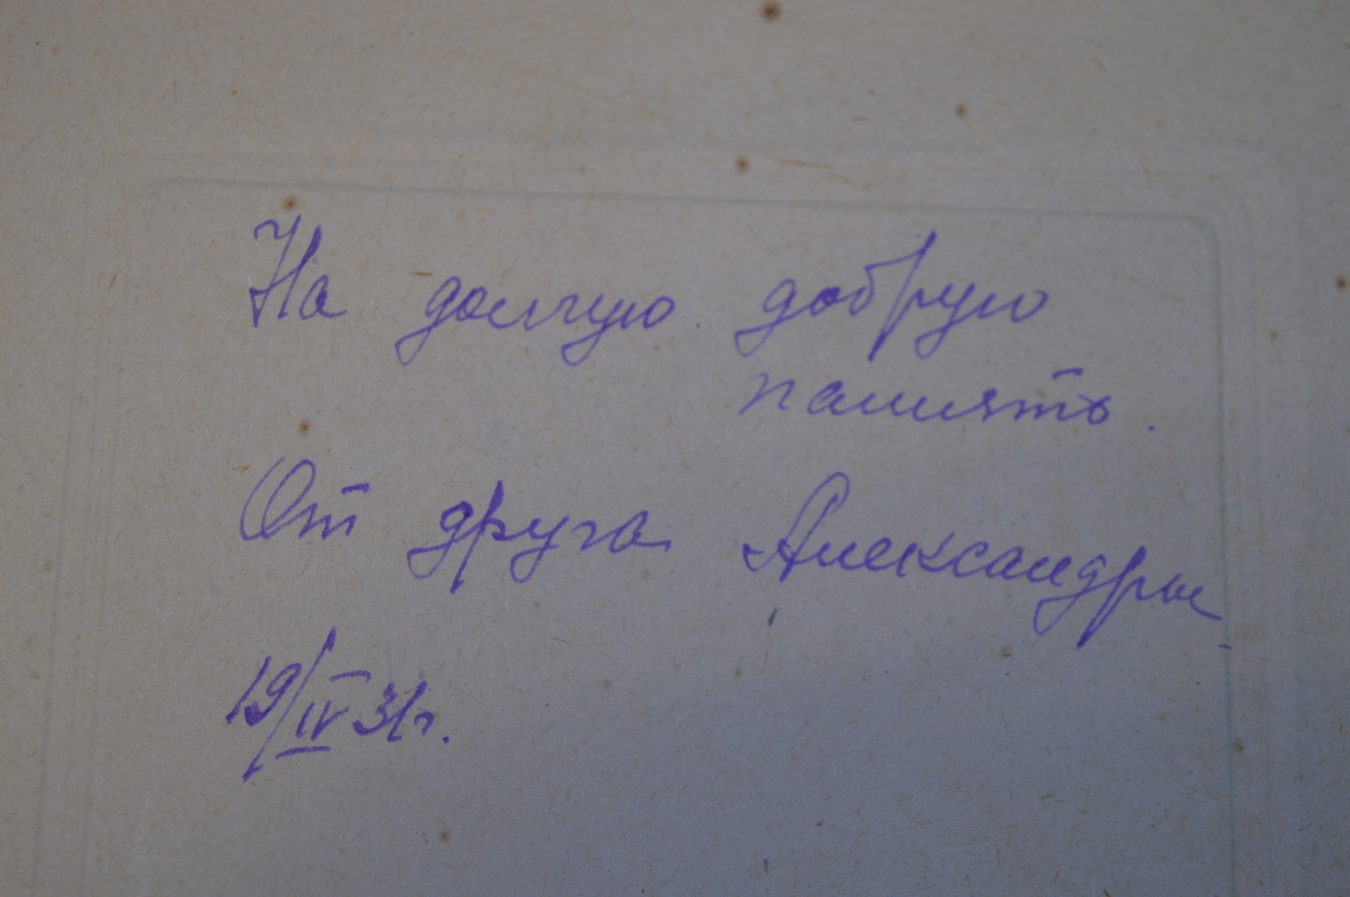 На долгую добрую
память.
От друга Александры
19/IV 31г.